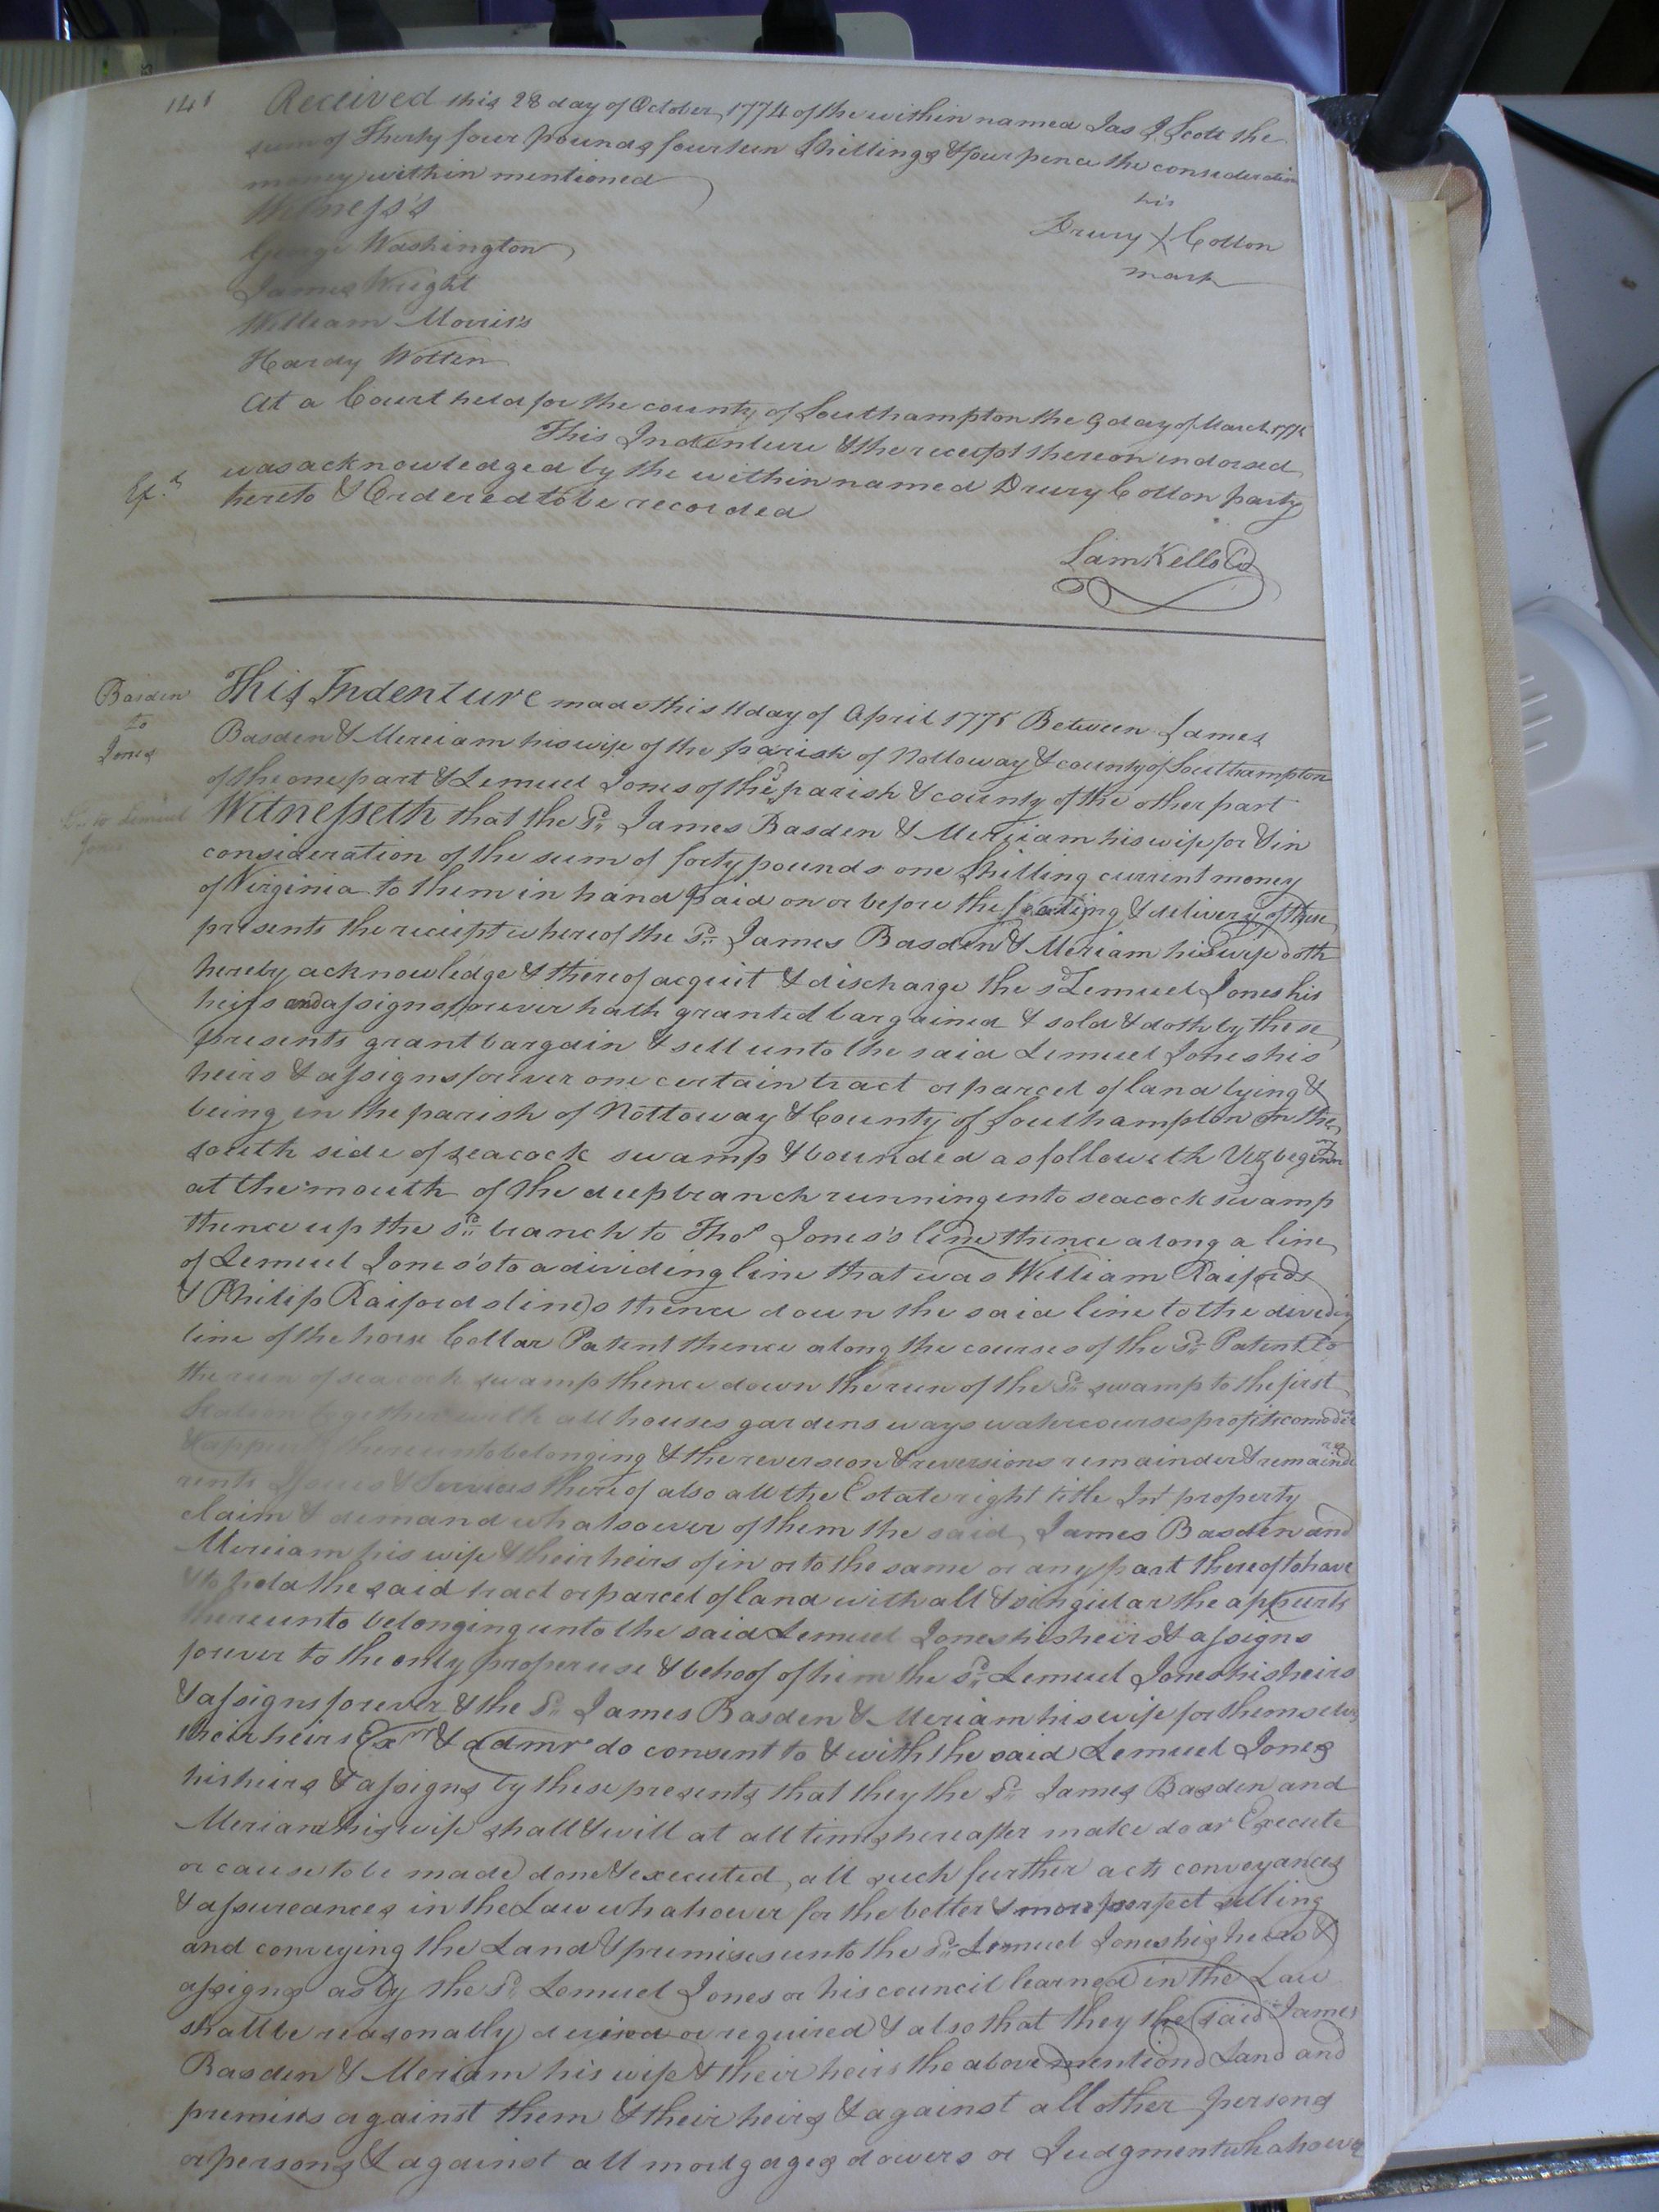 141 Received this 28 day of October 1774 of the within named Jas J Scott the
sum of Thirty four pounds fourteen Shillings & four pence the consideration
money within mentioned
Witness's
his
George Washington Drury X Cotton
mark
James Wright
William Morris's
Hardy Wotten
At a Court held for the county of Southampton the 9 day of March 1775
This Indenture & the receipt thereon indorsed
was acknowledged by the within named Drury Cotton party
hereto & Ordered to be recorded
Sam Kello
Basden
to
Jones
This Indenture made this 11 day of April 1775 Between James
Basden & Meriam his wife of the parish of Nottoway & county of Southampton
of the one part & Lemuel Jones of the sd parish & county of the other part
Witnesseth that the Sd James Basden & Meriam his wife for & in
consideration of the sum of forty pounds one shilling current money
of Virginia to them in hand paid on or before the sealing & delivery of these
presents the receipt whereof the Sd James Basden & Meriam his wife doth
hereby acknowledge & thereof acquit & discharge the sd Lemuel Jones his
heirs and assigns forever hath granted bargained & sold & doth by these
presents grant bargain & sell unto the said Lemuel Jones his
heirs & assigns forever one certain tract or parcel of land lying &
being in the parish of Nottoway & County of Southampton on the
south side of seacock swamp & bounded as followeth Viz begin
at the mouth of the deep branch running into seacock swamp
thence up the sd branch to Thos Jones's line thence along a line
of Lemuel Jones's to a dividing line that was William Raifords
& Philip Raifords line)s thence down the said line to the dividing
line of the horse Collar Patent thence along the courses of the Sd Patent to
the run of seacock swamp thence down the run of the Sd swamp to the first
Station together with all houses gardens ways watercourses profits comodit
thereunto belonging & the reversion & reversions remainder & remaind
rents Issues & Services thereof also all the Estate right title Int property
claim & demand whatsoever of them the said James Basden and
Meriam his wife & their heirs of in or to the same or any part thereof to have
& to hold the said tract or parcel of land with all & singular the appurts
thereunto belonging unto the said Lemuel Jones his heirs & assigns
forever to the only proper use & behoof of him the Sd Lemuel Jones his heirs
& assigns forever & the Sd James Basden & Meriam his wife for themselves
their heirs Exrs & admrs do consent to & with the said Lemuel Jones
his heirs & assigns by these presents that they the Sd James Basden and
Meriam his wife shall & will at all times hereafter make do or Execute
or cause to be made done & executed all such further acts conveyances
& assureances in the Law whatsoever for the better & more perfect selling
and conveying the Land & premises unto the Sd Lemuel Jones his heirs &
assigns as by the Sd Lemuel Jones or his council learned in the Law
shall be reasonably devised or required & also that they the said James
Basden & Meriam his wife & their heirs the above mentiond Land and
premises against them & their heirs & against all other persons
or persons & against all mortgages dowers or Judgment whatsoever